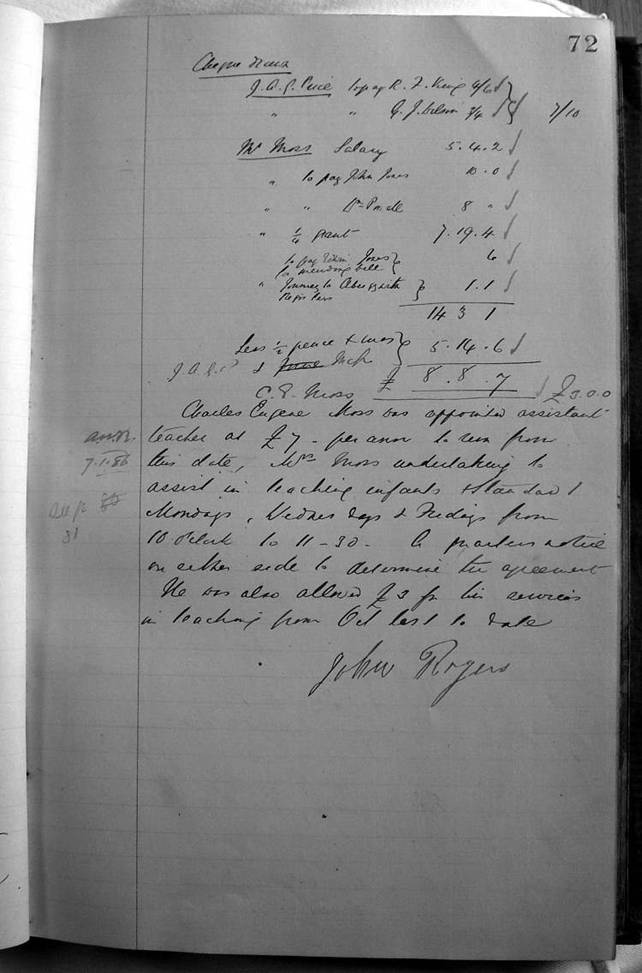 72
Cheques drawn
J.A.G. Price to pay R. F. King 4/6
" " G. J. Wilson 3/4 7/10
Mr Moss Salary 5.4.2
" to pay John Jones 10.0
" " Wm Powell 8 "
" ¼ grant 7.19.4
to pay Edwin Jones
for mending bell 6
" Journey to Aberystwith
Registers 1.1
14 3 1
Less ½ pence &
5.14.6
£ 8.8.7
C.E. Moss £3.0.0
Charles Eugene Moss was appointed assistant
teacher at £7 - per ann to run from
7.1.86
this date, Mrs Moss undertaking to
assist in teaching infants & Standard 1
Mondays, Wednesdays & Fridays from
10 o'clock to 11-30 - A quarters notice
on either side to determine the agreement
He was also allowed £3 for his services
in teaching from Oct last to date
John Rogers